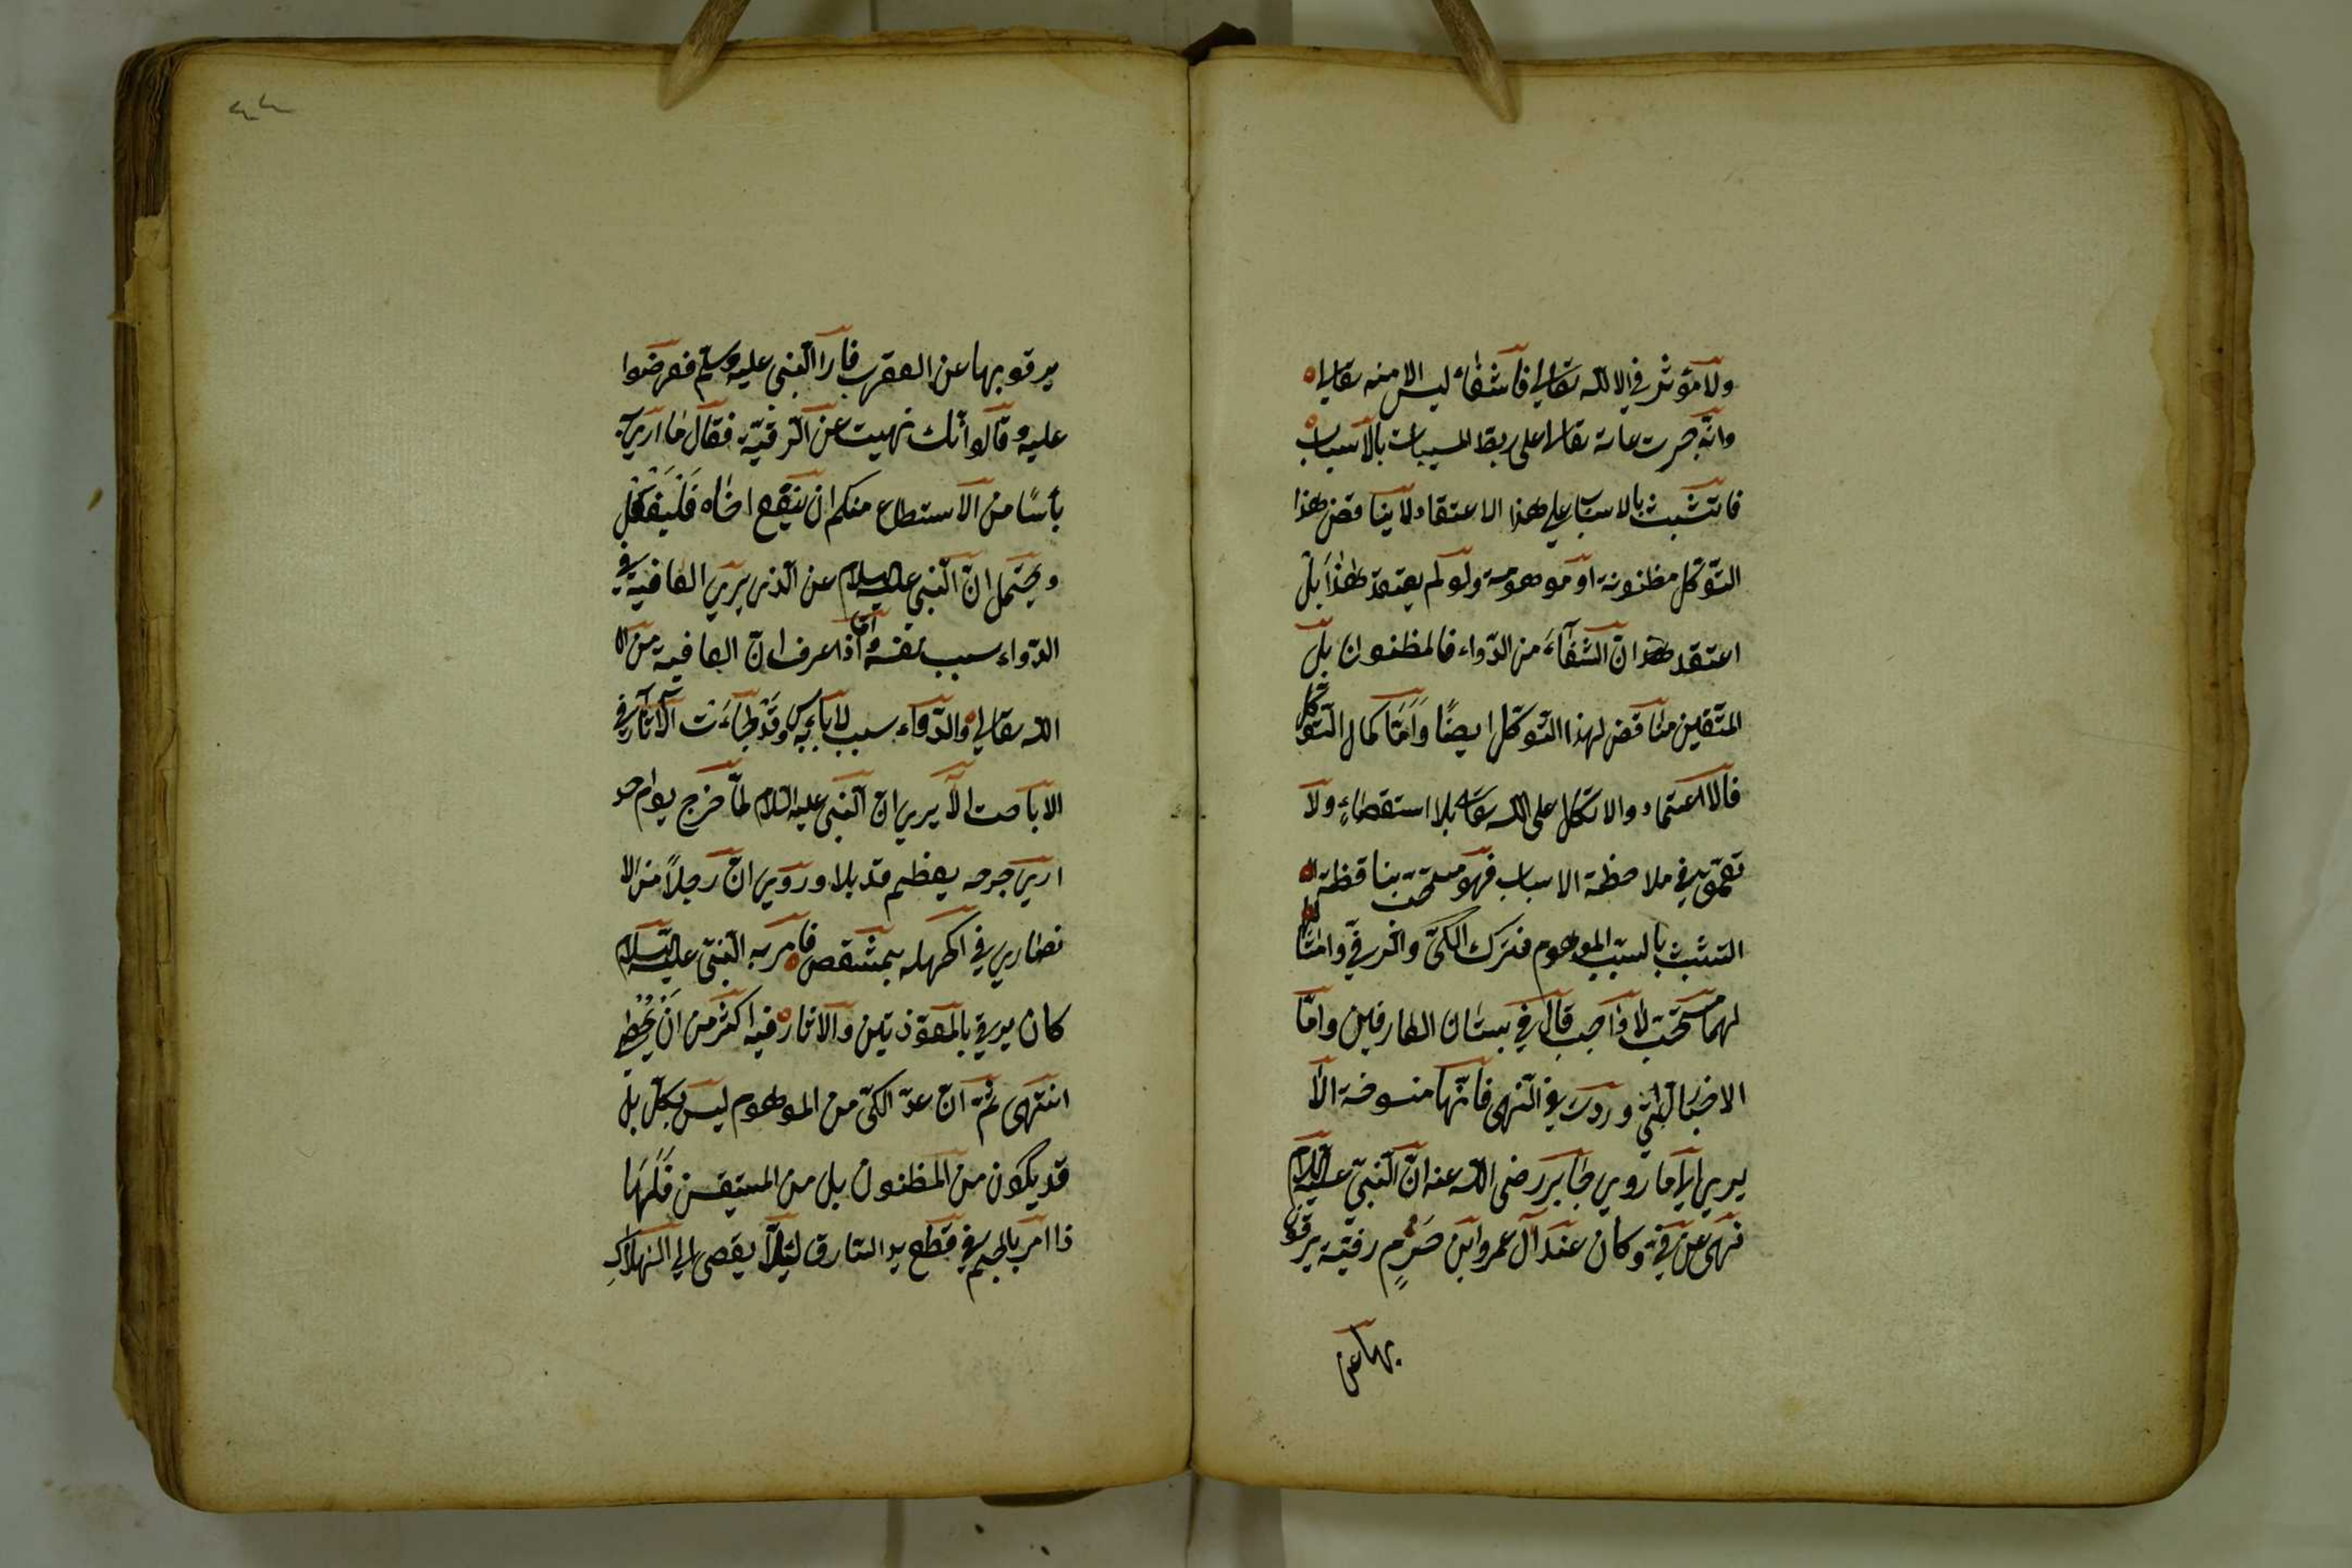 ولا مؤثر في الا الله تعالى فا شفاء ليس الا منه تعالى
وانه جرت عادته تعالى على ربط المسببات بالاسباب
فا تشبث بالاسباب على هذا الاعتقاد لا يناقض هذا
التوكل مظنونة او موهومة ولو لم يعتقد هذا بل
اعتقد ان الشفاء من الدواء فالمظنون بل
المتقين مناقض لهذا التوكل ايضا واما كمال التوكل
فالاعتماد والاتكال على الله تعالى بلا استقصاء ولا
تعمق في ملاحظة الاسباب فهو مستحب يناقظه
التشبث بالسبب الموهوم فترك الكي والرقي وامثا
لهما مستحب لا واجب قال في بستان العارفين واما
الاخبار التي وردت في النهي فانها منسوخة الا
يرى الى ما روي جابر رضى الله عنه ان النبى عليه السلام
نهى عن رقية وكان عند آل عمرو ابن حزم رقية يرقو
بها عن
يرقو بها عن العقرب فاتوا النبى عليه وسلم فعرضوا
عليه وقالوا انك نهيت عن الرقية فقال ما ارى به
بأسا من الاستطاع منكم ان ينفع اخاه فليفعل
ويحتمل ان النبى عليه السلام عن الذى يرى العافية في
الدواء سبب نفسه واما اذا عرف ان العافية من ا
الله تعالى والدواء سبب لا بأس به وقد جاءت الآثار في
الاباحت الا يرى ان النبى عليه السلام لما خرج يوم احد
ارى جرحه بعظيم قد بلا وروي ان رجلا من الا
نصارى في اكحله بمشقص فامر به النبى عليه السلام
كان يرقى بالمعوذتين والاثار فيه اكثر من ان يحصى
انتهى ثم ان عد الكي من الموهوم ليس بكل بل
قد يكون من المظنون بل من المستيقن فلهما
ذا امر بالحسم في قطع يد السارق لئلا يفضى الى الهلاك